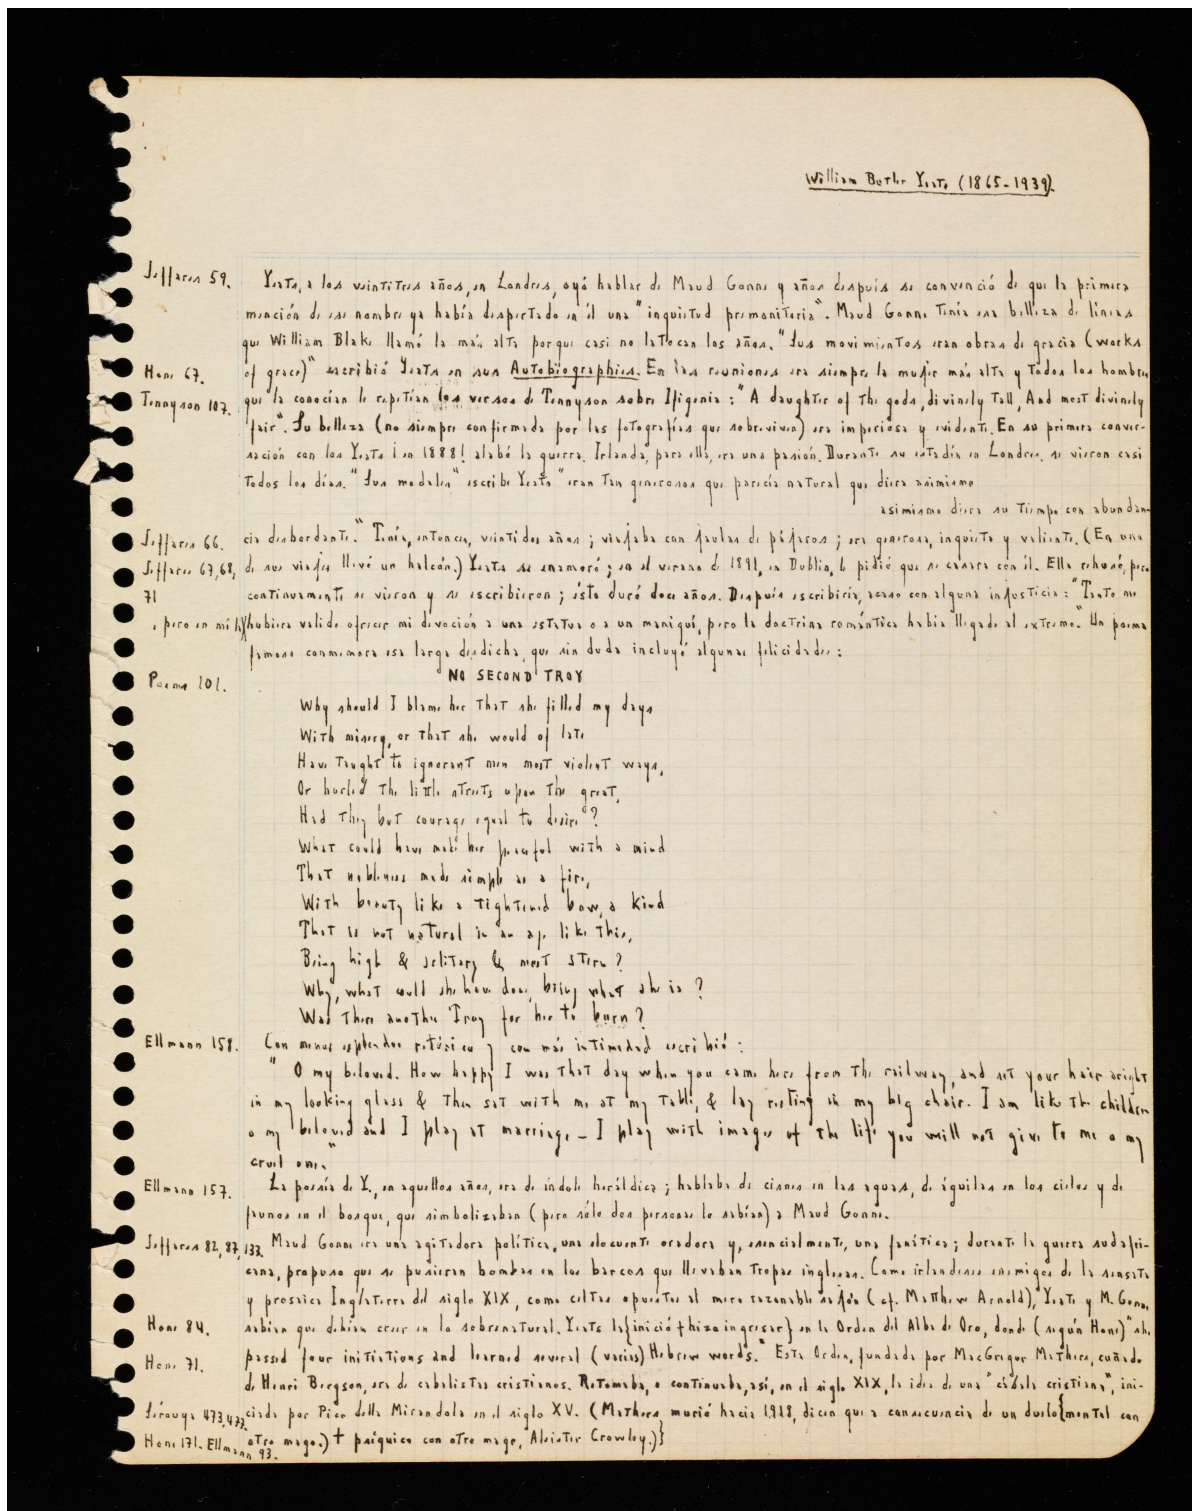 William Butler Yeats (1865-1939).
Jeffares 59. Yeats, a los veintitrés años, en Londres, oyó hablar de Maud Gonne y años después se convenció de que la primera
mención de ese nombre ya había despertado en él una "inquietud premonitoria". Maud Gonne tenía esa belleza de líneas
que William Blake llamó la más alta porque casi no la tocan los años. "Sus movimientos eran obras de gracia (works
Hone 67. of grace)" escribió Yeats en sus Autobiographies. En las reuniones era siempre la mujer más alta y todos los hombres
Tennyson 107. que la conocían le repetían los versos de Tennyson sobre Ifigenia: "A daughter of the gods, divinely tall, And most divinely
fair". Su belleza (no siempre confirmada por las fotografías que sobreviven) era imperiosa y evidente. En su primera conver-
sación con los Yeats (en 1888) alabó la guerra. Irlanda, para ella, era una pasión. Durante su estadía en Londres, se vieron casi
todos los días. "Sus modales" escribe Yeats "eran tan generosos que parecía natural que diera asimismo
asimismo diera su tiempo con abundan-
Jeffares 66. cia desbordante." Tenía, entonces, veintidós años; viajaba con jaulas de pájaros; era generosa, inquieta y valiente. (En uno
Jeffares 67, 68, de sus viajes llevó un halcón.) Yeats se enamoró; en el verano de 1891, en Dublin, le pidió que se casara con él. Ella rehusó, pero
71 continuamente se vieron y se escribieron; ésto duró doce años. Después escribiría, acaso con alguna injusticia: "Tanto me
, pero en mí la hubiera valido ofrecer mi devoción a una estatua o a un maniquí, pero la doctrina romántica había llegado al extremo." Un poema
famoso conmemora esa larga desdicha, que sin duda incluyó algunas felicidades:
Poems 101. NO SECOND TROY
Why should I blame her that she filled my days
With misery, or that she would of late
Have taught to ignorant men most violent ways,
Or hurled the little streets upon the great,
Had they but courage equal to desire?
What could have made her peaceful with a mind
That nobleness made simple as a fire,
With beauty like a tightened bow, a kind
That is not natural in an age like this,
Being high & solitary & most stern?
Why, what could she have done, being what she is?
Was there another Troy for her to burn?
Ellmann 158. Con menos esplendor retórico y con más intimidad escribió:
"O my beloved. How happy I was that day when you came here from the railway, and set your hair aright
in my looking glass & then sat with me at my table, & lay resting in my big chair. I am like the children
o my beloved and I play at marriage — I play with images of the life you will not give to me o my
cruel one."
Ellmann 157. La poesía de Y., en aquellos años, era de índole heráldica; hablaba de cisnes en las aguas, de águilas en los cielos y de
faunos en el bosque, que simbolizaban (pero sólo dos personas lo sabían) a Maud Gonne.
Jeffares 82, 87, 133. Maud Gonne era una agitadora política, una elocuente oradora y, esencialmente, una fanática; durante la guerra sudafri-
cana, propuso que se pusieran bombas en los barcos que llevaban tropas inglesas. Como irlandeses enemigos de la sensata
y prosaica Inglaterra del siglo XIX, como celtas opuestos al mero razonable sajón (cf. Matthew Arnold), Yeats y M. Gonne
Hone 84. sabían que debían creer en lo sobrenatural. Yeats la {inició + hizo ingresar} en la Orden del Alba de Oro, donde (según Hone) "she
Hone 71. passed four initiations and learned several (varias) Hebrew words." Esta Orden, fundada por MacGregor Mathers, cuñado
de Henri Bergson, era de cabalistas cristianos. Retomaba, o continuaba, así, en el siglo XIX, la idea de una "cábala cristiana", ini-
Sérouya 473, 477. ciada por Pico della Mirandola en el siglo XV. (Mathers murió hacia 1918, dicen que a consecuencia de un duelo {mental con
Hone 171. Ellmann 93. otro mago.) + psíquico con otro mago, Aleister Crowley.)}